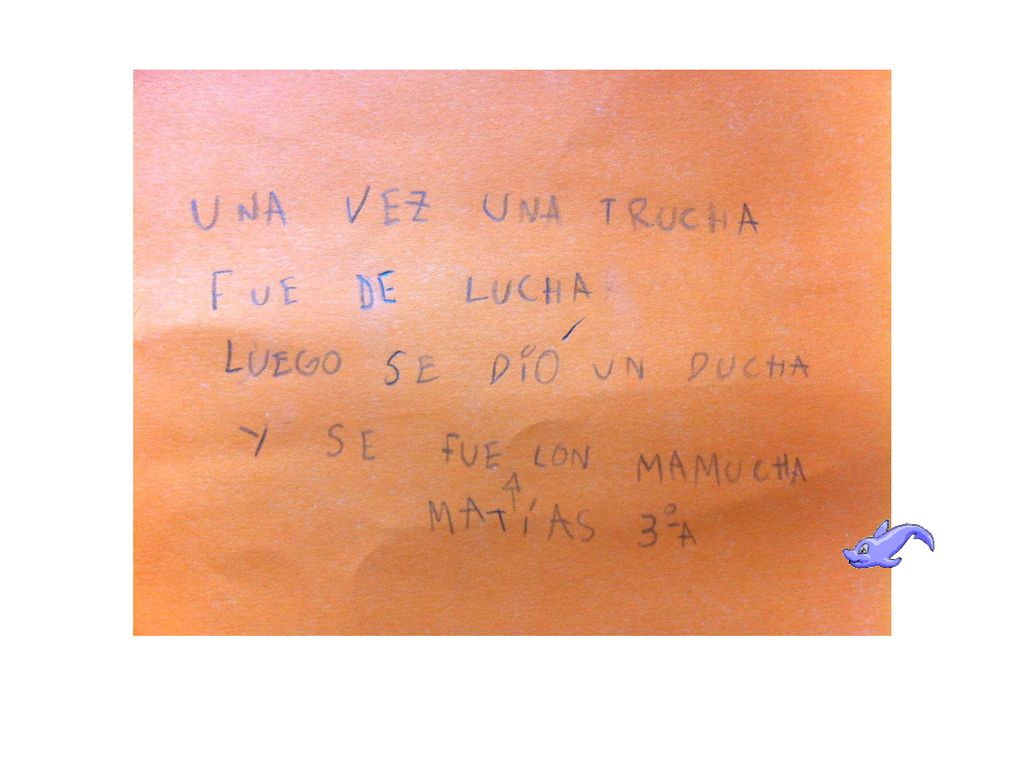 UNA VEZ UNA TRUCHA
FUE DE LUCHA
LUEGO SE DIÓ UN DUCHA
Y SE FUE LON MAMUCHA
MATÍAS 3ºA